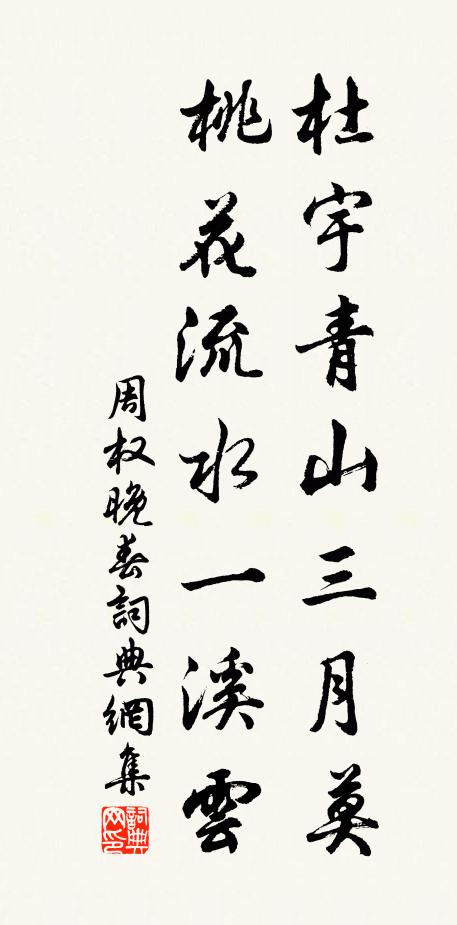 杜宇青山三月莫
桃花流水一溪雲
周权晚春詞典網集
詞典网印